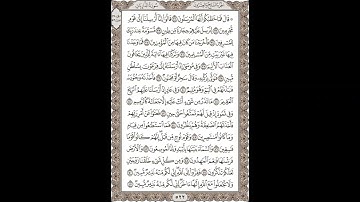 ۞ قَالَ فَمَا خَطْبُكُمْ أَيُّهَا الْمُرْسَلُونَ ٣١ قَالُوا إِنَّا أُرْسِلْنَا إِلَىٰ قَوْمٍ
مُّجْرِمِينَ ٣٢ لِنُرْسِلَ عَلَيْهِمْ حِجَارَةً مِّن طِينٍ ٣٣ مُّسَوَّمَةً عِندَ رَبِّكَ
لِلْمُسْرِفِينَ ٣٤ فَأَخْرَجْنَا مَن كَانَ فِيهَا مِنَ الْمُؤْمِنِينَ ٣٥ فَمَا وَجَدْنَا
فِيهَا غَيْرَ بَيْتٍ مِّنَ الْمُسْلِمِينَ ٣٦ وَتَرَكْنَا فِيهَا آيَةً لِّلَّذِينَ يَخَافُونَ
الْعَذَابَ الْأَلِيمَ ٣٧ وَفِي مُوسَىٰ إِذْ أَرْسَلْنَاهُ إِلَىٰ فِرْعَوْنَ بِسُلْطَانٍ
مُّبِينٍ ٣٨ فَتَوَلَّىٰ بِرُكْنِهِ وَقَالَ سَاحِرٌ أَوْ مَجْنُونٌ ٣٩ فَأَخَذْنَاهُ وَجُنُودَهُ
فَنَبَذْنَاهُمْ فِي الْيَمِّ وَهُوَ مُلِيمٌ ٤٠ وَفِي عَادٍ إِذْ أَرْسَلْنَا عَلَيْهِمُ الرِّيحَ
الْعَقِيمَ ٤١ مَا تَذَرُ مِن شَيْءٍ أَتَتْ عَلَيْهِ إِلَّا جَعَلَتْهُ كَالرَّمِيمِ ٤٢
وَفِي ثَمُودَ إِذْ قِيلَ لَهُمْ تَمَتَّعُوا حَتَّىٰ حِينٍ ٤٣ فَعَتَوْا عَنْ أَمْرِ رَبِّهِمْ
فَأَخَذَتْهُمُ الصَّاعِقَةُ وَهُمْ يَنظُرُونَ ٤٤ فَمَا اسْتَطَاعُوا مِن قِيَامٍ
وَمَا كَانُوا مُنتَصِرِينَ ٤٥ وَقَوْمَ نُوحٍ مِّن قَبْلُ إِنَّهُمْ كَانُوا قَوْمًا
فَاسِقِينَ ٤٦ وَالسَّمَاءَ بَنَيْنَاهَا بِأَيْيدٍ وَإِنَّا لَمُوسِعُونَ ٤٧ وَالْأَرْضَ
فَرَشْنَاهَا فَنِعْمَ الْمَاهِدُونَ ٤٨ وَمِن كُلِّ شَيْءٍ خَلَقْنَا زَوْجَيْنِ
لَعَلَّكُمْ تَذَكَّرُونَ ٤٩ فَفِرُّوا إِلَى اللَّهِ إِنِّي لَكُم مِّنْهُ نَذِيرٌ مُّبِينٌ ٥٠
وَلَا تَجْعَلُوا مَعَ اللَّهِ إِلَٰهًا آخَرَ إِنِّي لَكُم مِّنْهُ نَذِيرٌ مُّبِينٌ ٥١
٥٢٢